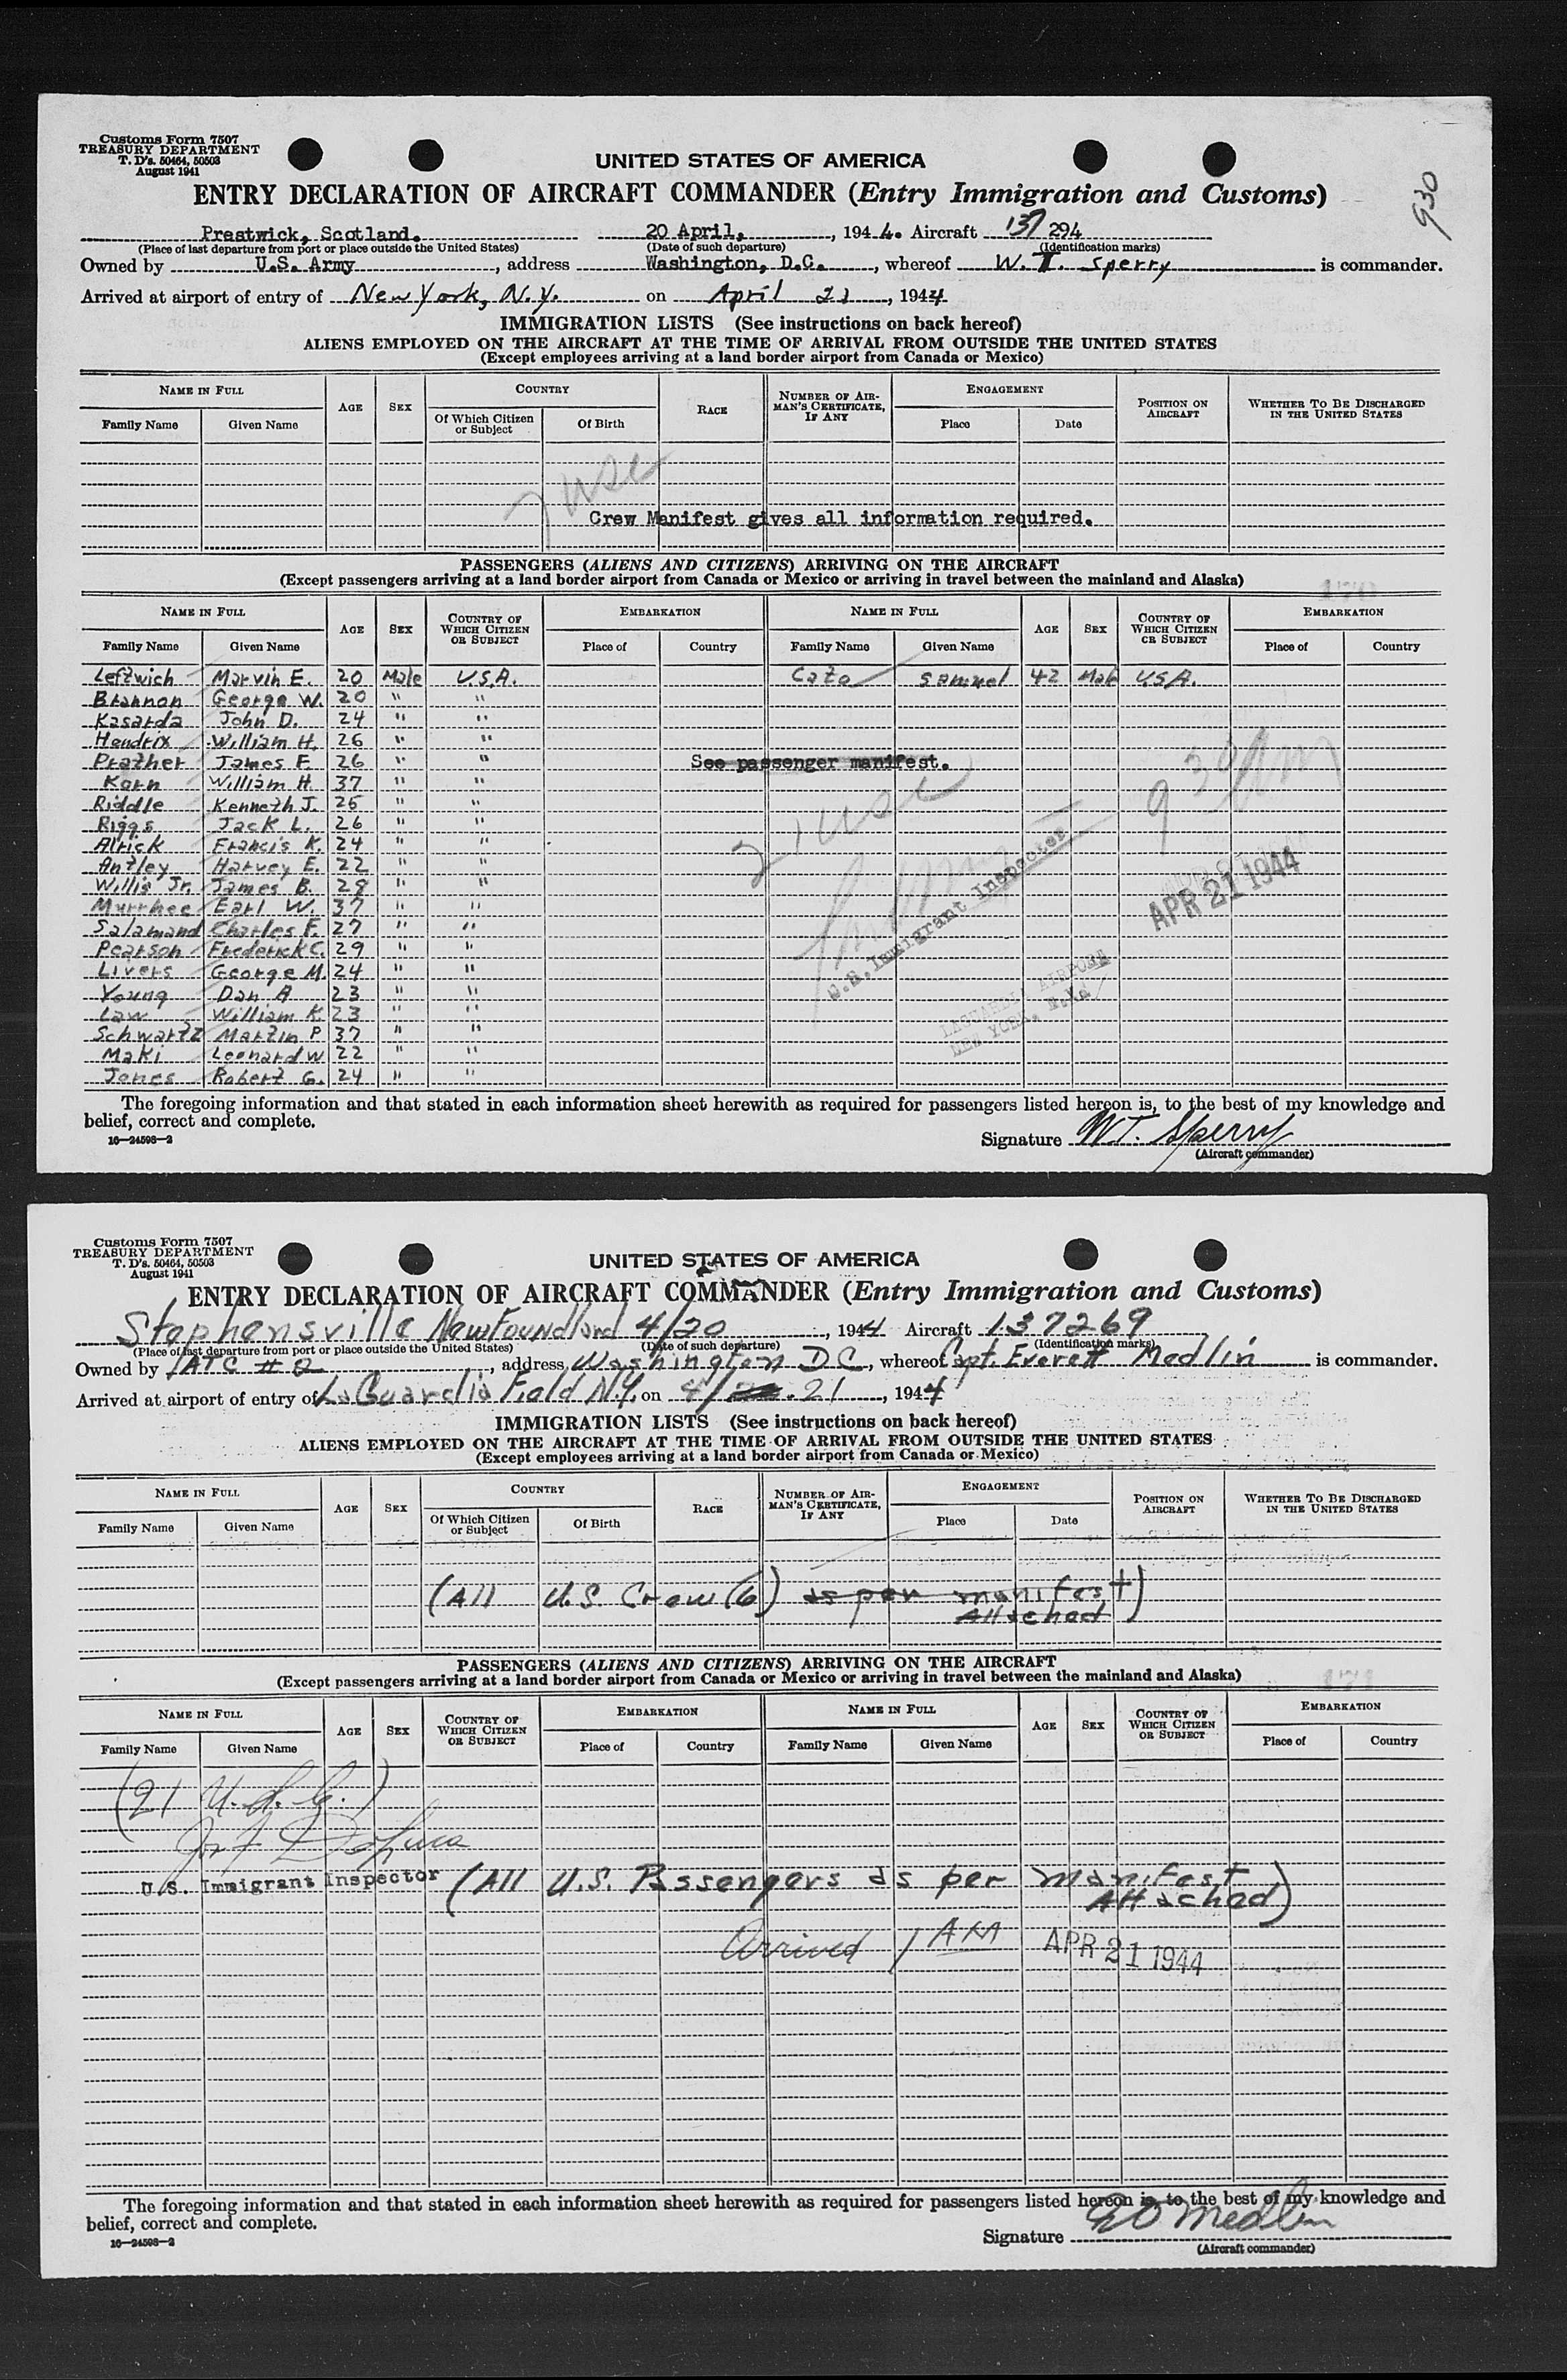 Customs Form 7507
TREASURY DEPARTMENT
T. D's. 50464, 50503
August 1941
930
UNITED STATES OF AMERICA
ENTRY DECLARATION OF AIRCRAFT COMMANDER (Entry Immigration and Customs)
Prestwick, Scotland. 20 April, , 1944. Aircraft 137 294
(Place of last departure from port or place outside the United States) (Date of such departure) (Identification marks)
Owned by U.S. Army , address Washington, D.C. , whereof W. T. Sperry is commander.
Arrived at airport of entry of New York, N.Y. on April 21 , 1944
IMMIGRATION LISTS (See instructions on back hereof)
ALIENS EMPLOYED ON THE AIRCRAFT AT THE TIME OF ARRIVAL FROM OUTSIDE THE UNITED STATES
(Except employees arriving at a land border airport from Canada or Mexico)
NAME IN FULL AGE SEX COUNTRY RACE NUMBER OF AIRMAN'S CERTIFICATE, IF ANY ENGAGEMENT POSITION ON AIRCRAFT WHETHER TO BE DISCHARGED IN THE UNITED STATES
Family Name Given Name Of Which Citizen or Subject Of Birth Place Date
7 USC
Crew Manifest gives all information required.
PASSENGERS (ALIENS AND CITIZENS) ARRIVING ON THE AIRCRAFT
(Except passengers arriving at a land border airport from Canada or Mexico or arriving in travel between the mainland and Alaska)
170
NAME IN FULL AGE SEX COUNTRY OF WHICH CITIZEN OR SUBJECT EMBARKATION NAME IN FULL AGE SEX COUNTRY OF WHICH CITIZEN OR SUBJECT EMBARKATION
Family Name Given Name Place of Country Family Name Given Name Place of Country
Leftwich Marvin E. 20 Male U.S.A. Cato Samuel 42 Male U.S.A.
Brannon George W. 20 " "
Kasarda John D. 24 " "
Hendrix William H. 26 " "
Prather James F. 26 " " See passenger manifest.
Korn William H. 37 " "
Riddle Kenneth J. 25 " "
Riggs Jack L. 26 " "
Alrick Francis K. 24 " "
Antley Harvey E. 22 " "
Willis Jr. James B. 28 " "
Murrhee Earl W. 37 " "
Salamand Charles F. 27 " "
Pearson Frederick C. 29 " "
Livers George M. 24 " "
Young Dan A 23 " "
Law William K. 23 " "
Schwartz Martin P 37 " "
Maki Leonard W 22 " "
Jones Robert G. 24 " "
21 USC
9 30 AM
U.S. Immigrant Inspector
APR 21 1944
LAGUARDIA AIRPORT
NEW YORK, N.Y.
The foregoing information and that stated in each information sheet herewith as required for passengers listed hereon is, to the best of my knowledge and
belief, correct and complete.
16—24598—2
Signature W.T. Sperry
(Aircraft commander)
Customs Form 7507
TREASURY DEPARTMENT
T. D's. 50464, 50503
August 1941
UNITED STATES OF AMERICA
ENTRY DECLARATION OF AIRCRAFT COMMANDER (Entry Immigration and Customs)
Stephensville NewFoundland 4/20 , 1944 Aircraft 137269
(Place of last departure from port or place outside the United States) (Date of such departure) (Identification marks)
Owned by ATC # 2 , address Washington DC , whereof Capt. Everett Medlin is commander.
Arrived at airport of entry of La Guardia Field N.Y. on 4/ 21 , 1944
IMMIGRATION LISTS (See instructions on back hereof)
ALIENS EMPLOYED ON THE AIRCRAFT AT THE TIME OF ARRIVAL FROM OUTSIDE THE UNITED STATES
(Except employees arriving at a land border airport from Canada or Mexico)
NAME IN FULL AGE SEX COUNTRY RACE NUMBER OF AIRMAN'S CERTIFICATE, IF ANY ENGAGEMENT POSITION ON AIRCRAFT WHETHER TO BE DISCHARGED IN THE UNITED STATES
Family Name Given Name Of Which Citizen or Subject Of Birth Place Date
(All U.S. Crew (6) as per manifest
Attached)
PASSENGERS (ALIENS AND CITIZENS) ARRIVING ON THE AIRCRAFT
(Except passengers arriving at a land border airport from Canada or Mexico or arriving in travel between the mainland and Alaska)
171
NAME IN FULL AGE SEX COUNTRY OF WHICH CITIZEN OR SUBJECT EMBARKATION NAME IN FULL AGE SEX COUNTRY OF WHICH CITIZEN OR SUBJECT EMBARKATION
Family Name Given Name Place of Country Family Name Given Name Place of Country
(21 U.S.C.)
U.S. Immigrant Inspector (All U.S. Passengers as per manifest
Attached)
Arrived 1 AM APR 21 1944
The foregoing information and that stated in each information sheet herewith as required for passengers listed hereon is, to the best of my knowledge and
belief, correct and complete.
16—24598—2
Signature E O Medlin
(Aircraft commander)